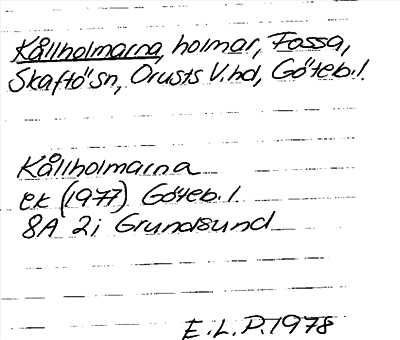 Kållholmarna, holmar, Fossa,
Skaftö sn, Orusts V. hd, Göteb. l.
Kållholmarna
ek (1977) Göteb. l.
8A 2i Grundsund
E. L. P. 1978